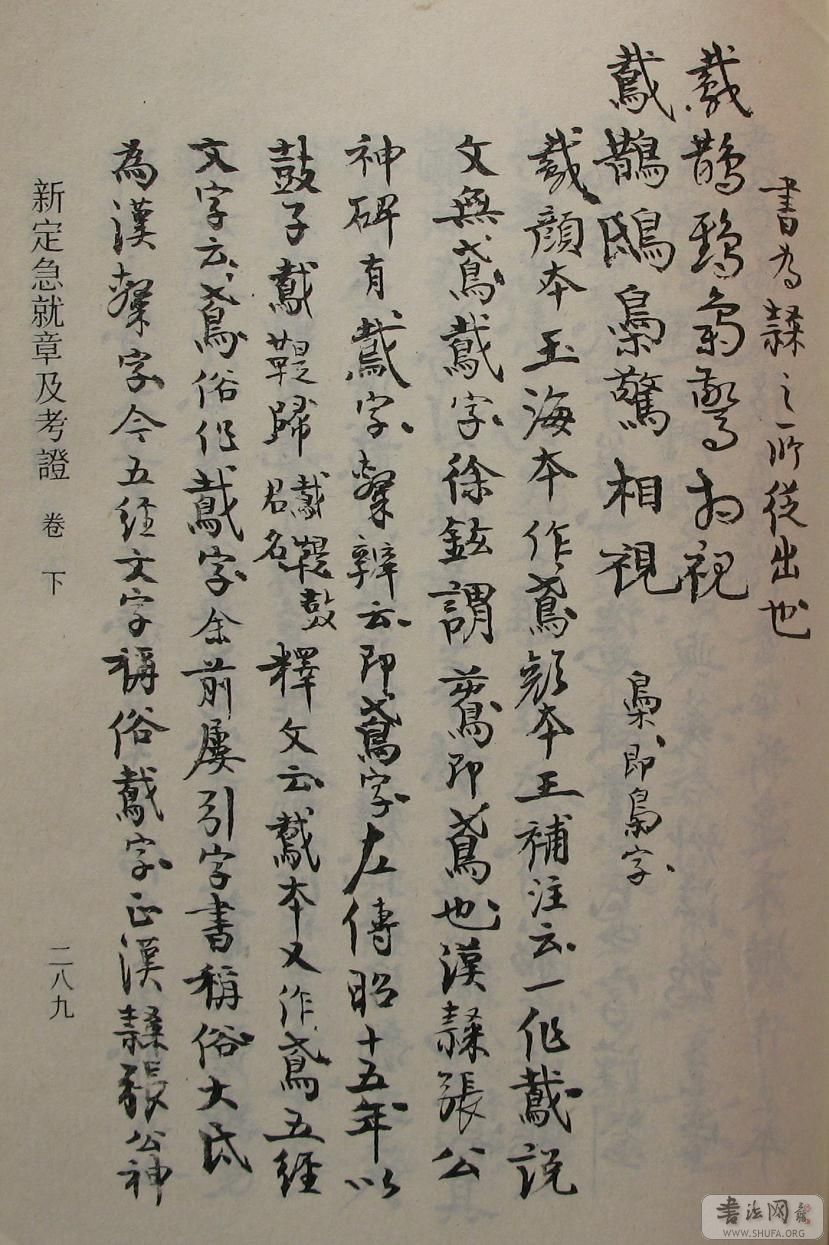 書為隸之所從出也
鳶鵲鴟梟驚相視
鳶鵲鴟梟驚相視
梟、即梟字、
鳶顏本玉海本作鳶顏本王補注云一作鳶說
文無鳶鳶字徐鉉謂鳶即鳶也漢隸張公
神碑有鳶字、鄰辨云即鳶字左傳昭十五年以
鼓子鳶鞮歸
鳶鞮鼓
君名
釋文云鳶本又作鳶五經
文字云鳶俗作鳶字余前屢引字書稱俗大氐
為漢隸字今五經文字稱俗鳶字正漢隸張公神
新定急就章及考證 卷下
二八九
書法网
WWW.SHUFA.ORG